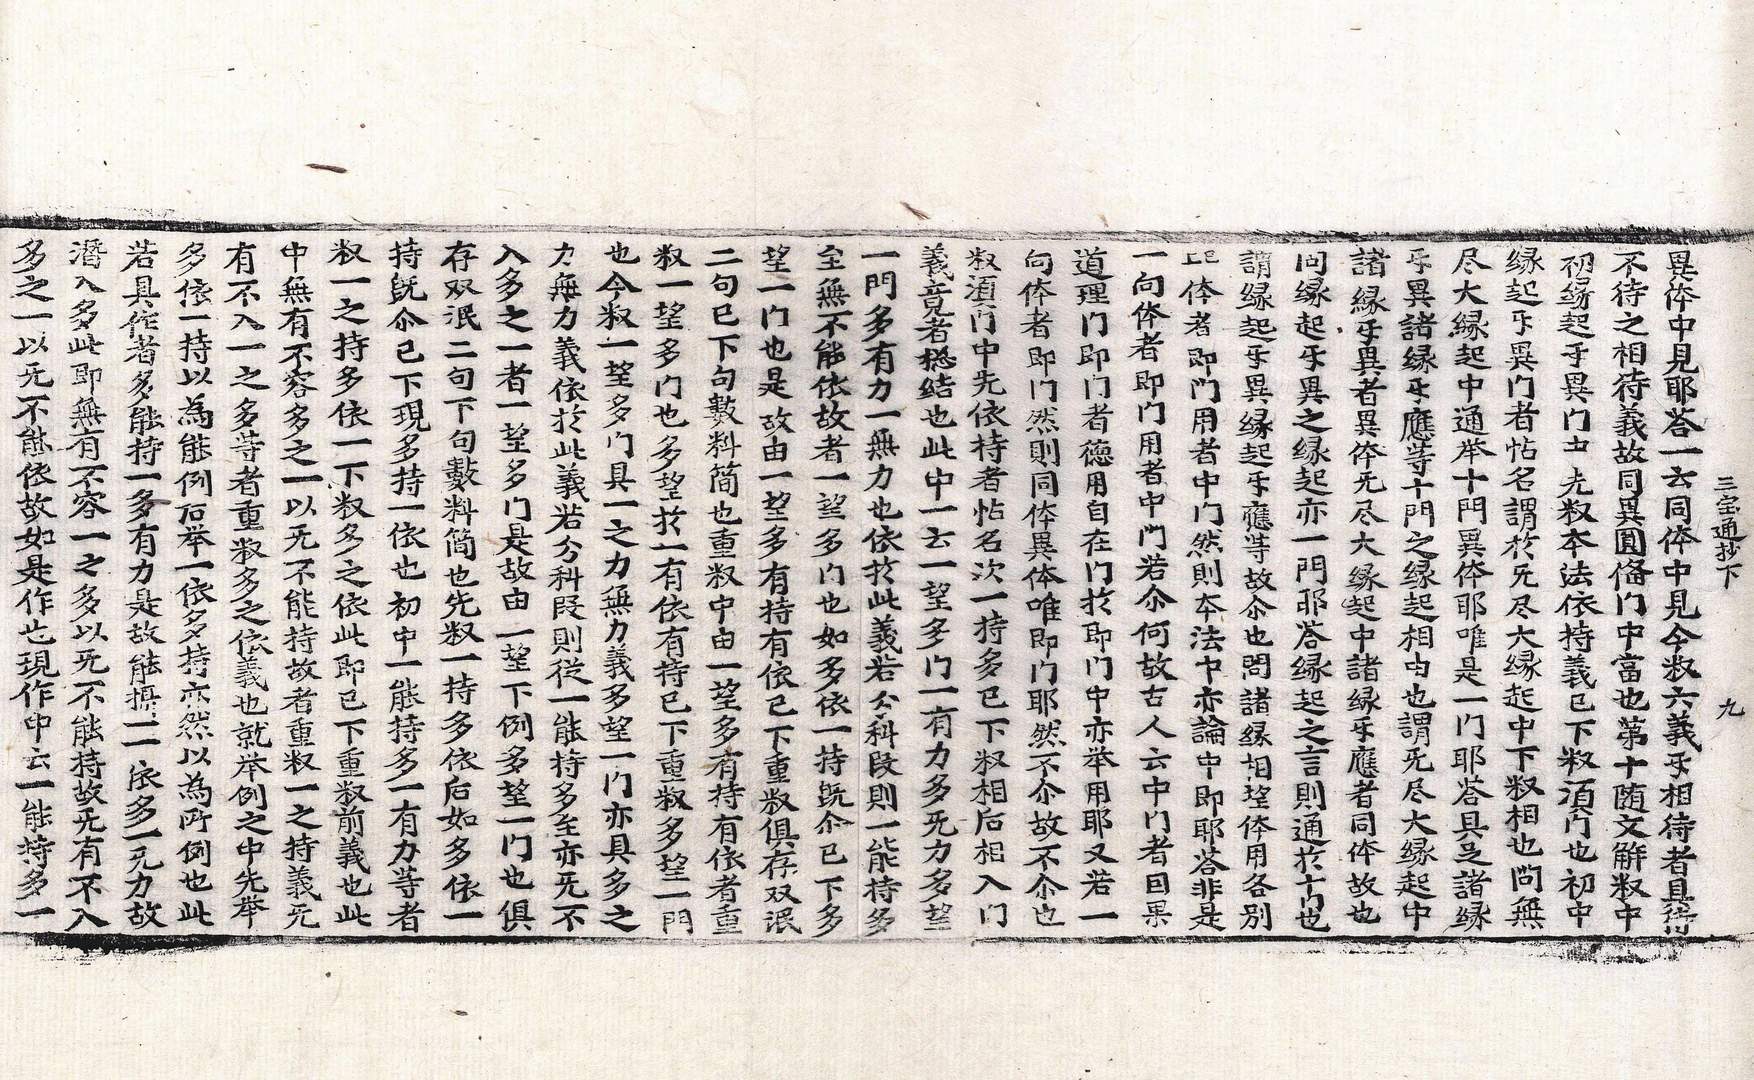 三宝通抄下　九
異体中見耶荅一云同体中見今叙六義𤔫相待者具待
不待之相待義故同異圓俻门中當也第十随文觧叙中
初緣起𤔫異门中先叙夲法依持義已下叙湏门也初中
緣起𤔫異门者帖名謂扵无尽大緣起中下叙相也問無
尽大緣起中通举十門異体耶唯是一门耶荅具足諸緣
𤔫異諸緣𤔫應等十門之緣起相由也謂无尽大緣起中
諸緣𤔫異者異体无尽大緣起中諸緣𤔫應者同体故也
问緣起𤔫異之緣起亦一門耶荅緣起之言則通扵十门也
謂緣起𤔫異緣起𤔫應等故尒也問諸緣相望体用各別
体者即門用者中门然則夲法中亦論中即耶荅非是
一向体者即门用者中門若尒何故古人云中门者因果
道理门即门者德用自在门扵即门中亦举用耶又若一
向体者即门然則同体異体唯即门耶然不尒故不尒也
叙湏门中先依持者帖名次一持多已下叙相后相入门
義竟者捴结也此中一云一望多门一有力多无力多望
一門多有力一無力也依扵此義若分科段則一能持多
至無不能依故者一望多门也如多依一持旣尒已下多
望一门也是故由一望多有持有依已下重叙俱存双泯
二句已下句數料简也重叙中由一望多有持有依者重
叙一望多门也多望扵一有依有持已下重叙多望一門
也今叙一望多门具一之力無力義多望一门亦具多之
力無力義依扵此義若分科段則從一能持多至亦无不
入多之一者一望多门是故由一望下例多望一门也俱
存双泯二句下句數料简也先叙一持多依后如多依一
持旣尒已下現多持一依也初中一能持多一有力等者
叙一之持多依一下叙多之依此即已下重叙前義也此
中無有不容多之一以无不能持故者重叙一之持義无
有不入一之多等者重叙多之依義也就举例之中先举
多依一持以為能例后举一依多持亦然以為所例也此
若具作者多能持一多有力是故能攝一一依多一无力故
潛入多此即無有不容一之多以无不能持故无有不入
多之一以无不能依故如是作也現作中云一能持多一